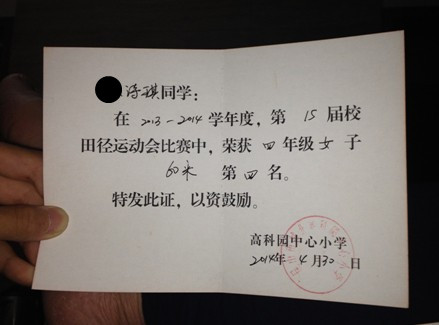 诗琪同学：
在 2013-2014 学年度，第 15 届校
田径运动会比赛中，荣获 四 年级 女 子
60米 第 四 名。
特发此证，以资鼓励。
高科园中心小学
2014年 4 月 30 日